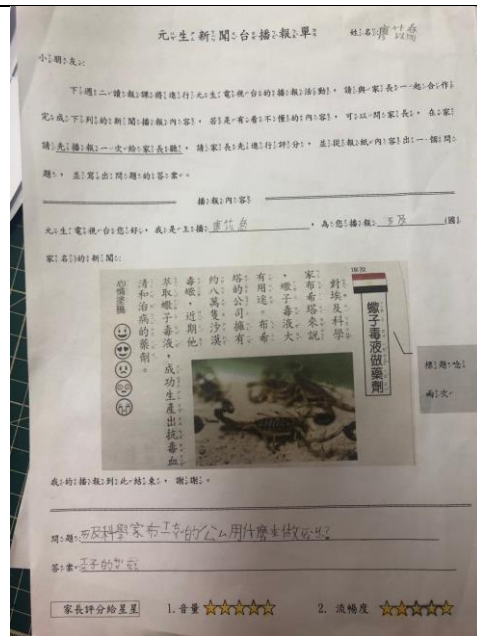 元生新聞台播報單
姓名:
小朋友:
下週二讀報課將進行元生電視台的播報活動,請與家長一起合作
完成下列的新聞播報內容,若是有看不懂的內容,可以問家長,在家
請先播報一次給家長聽,請家長先進行評分,並從報紙內容出一個問
題,並寫出問題的答案。
播報內容
元生電視台您好,我是主播
,為您播報
(國
家名)的新聞:
蠍子毒液做藥劑
對埃及科學
家布希塔來說
,蠍子毒液大
有用途。布希
塔的公司擁有
約八萬隻沙漠
毒蠍,近期他
萃取蠍子毒液,成功生產出抗毒血
清和治病的藥劑。
心情塗鴉
標題唸
兩次
我的播報到此結束,謝謝。
問題:
答案:
家長評分給星星 1.音量☆☆☆☆☆ 2. 流暢度 ☆☆☆☆☆